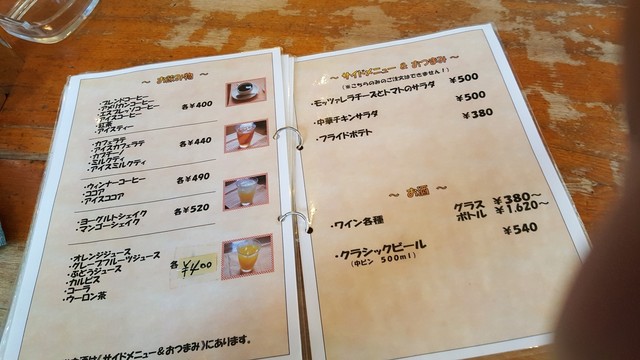 ～ お飲み物 ～
・ブレンドコーヒー
・アメリカンコーヒー
・エスプレッソコーヒー
・アイスコーヒー
・紅茶
・アイスティー
各￥400
・カフェラテ
・アイスカフェラテ
・カプチーノ
・ミルクティ
・アイスミルクティ
各￥440
・ウィンナーコーヒー
・ココア
・アイスココア
各￥490
・ヨーグルトシェイク
・マンゴーシェイク
各￥520
・オレンジジュース
・グレープフルーツジュース
・ぶどうジュース
・カルピス
・コーラ
・ウーロン茶
各 ￥400
(サイドメニュー&おつまみ)にあります。
～ サイドメニュー & おつまみ ～
(※こちらのみのご注文はできません!)
・モッツァレラチーズとトマトのサラダ ￥500
・中華チキンサラダ ￥500
・フライドポテト ￥380
～ お酒 ～
・ワイン各種 グラス ￥380～
ボトル ￥1,620～
・クラシックビール ￥540
(中ビン 500ml)